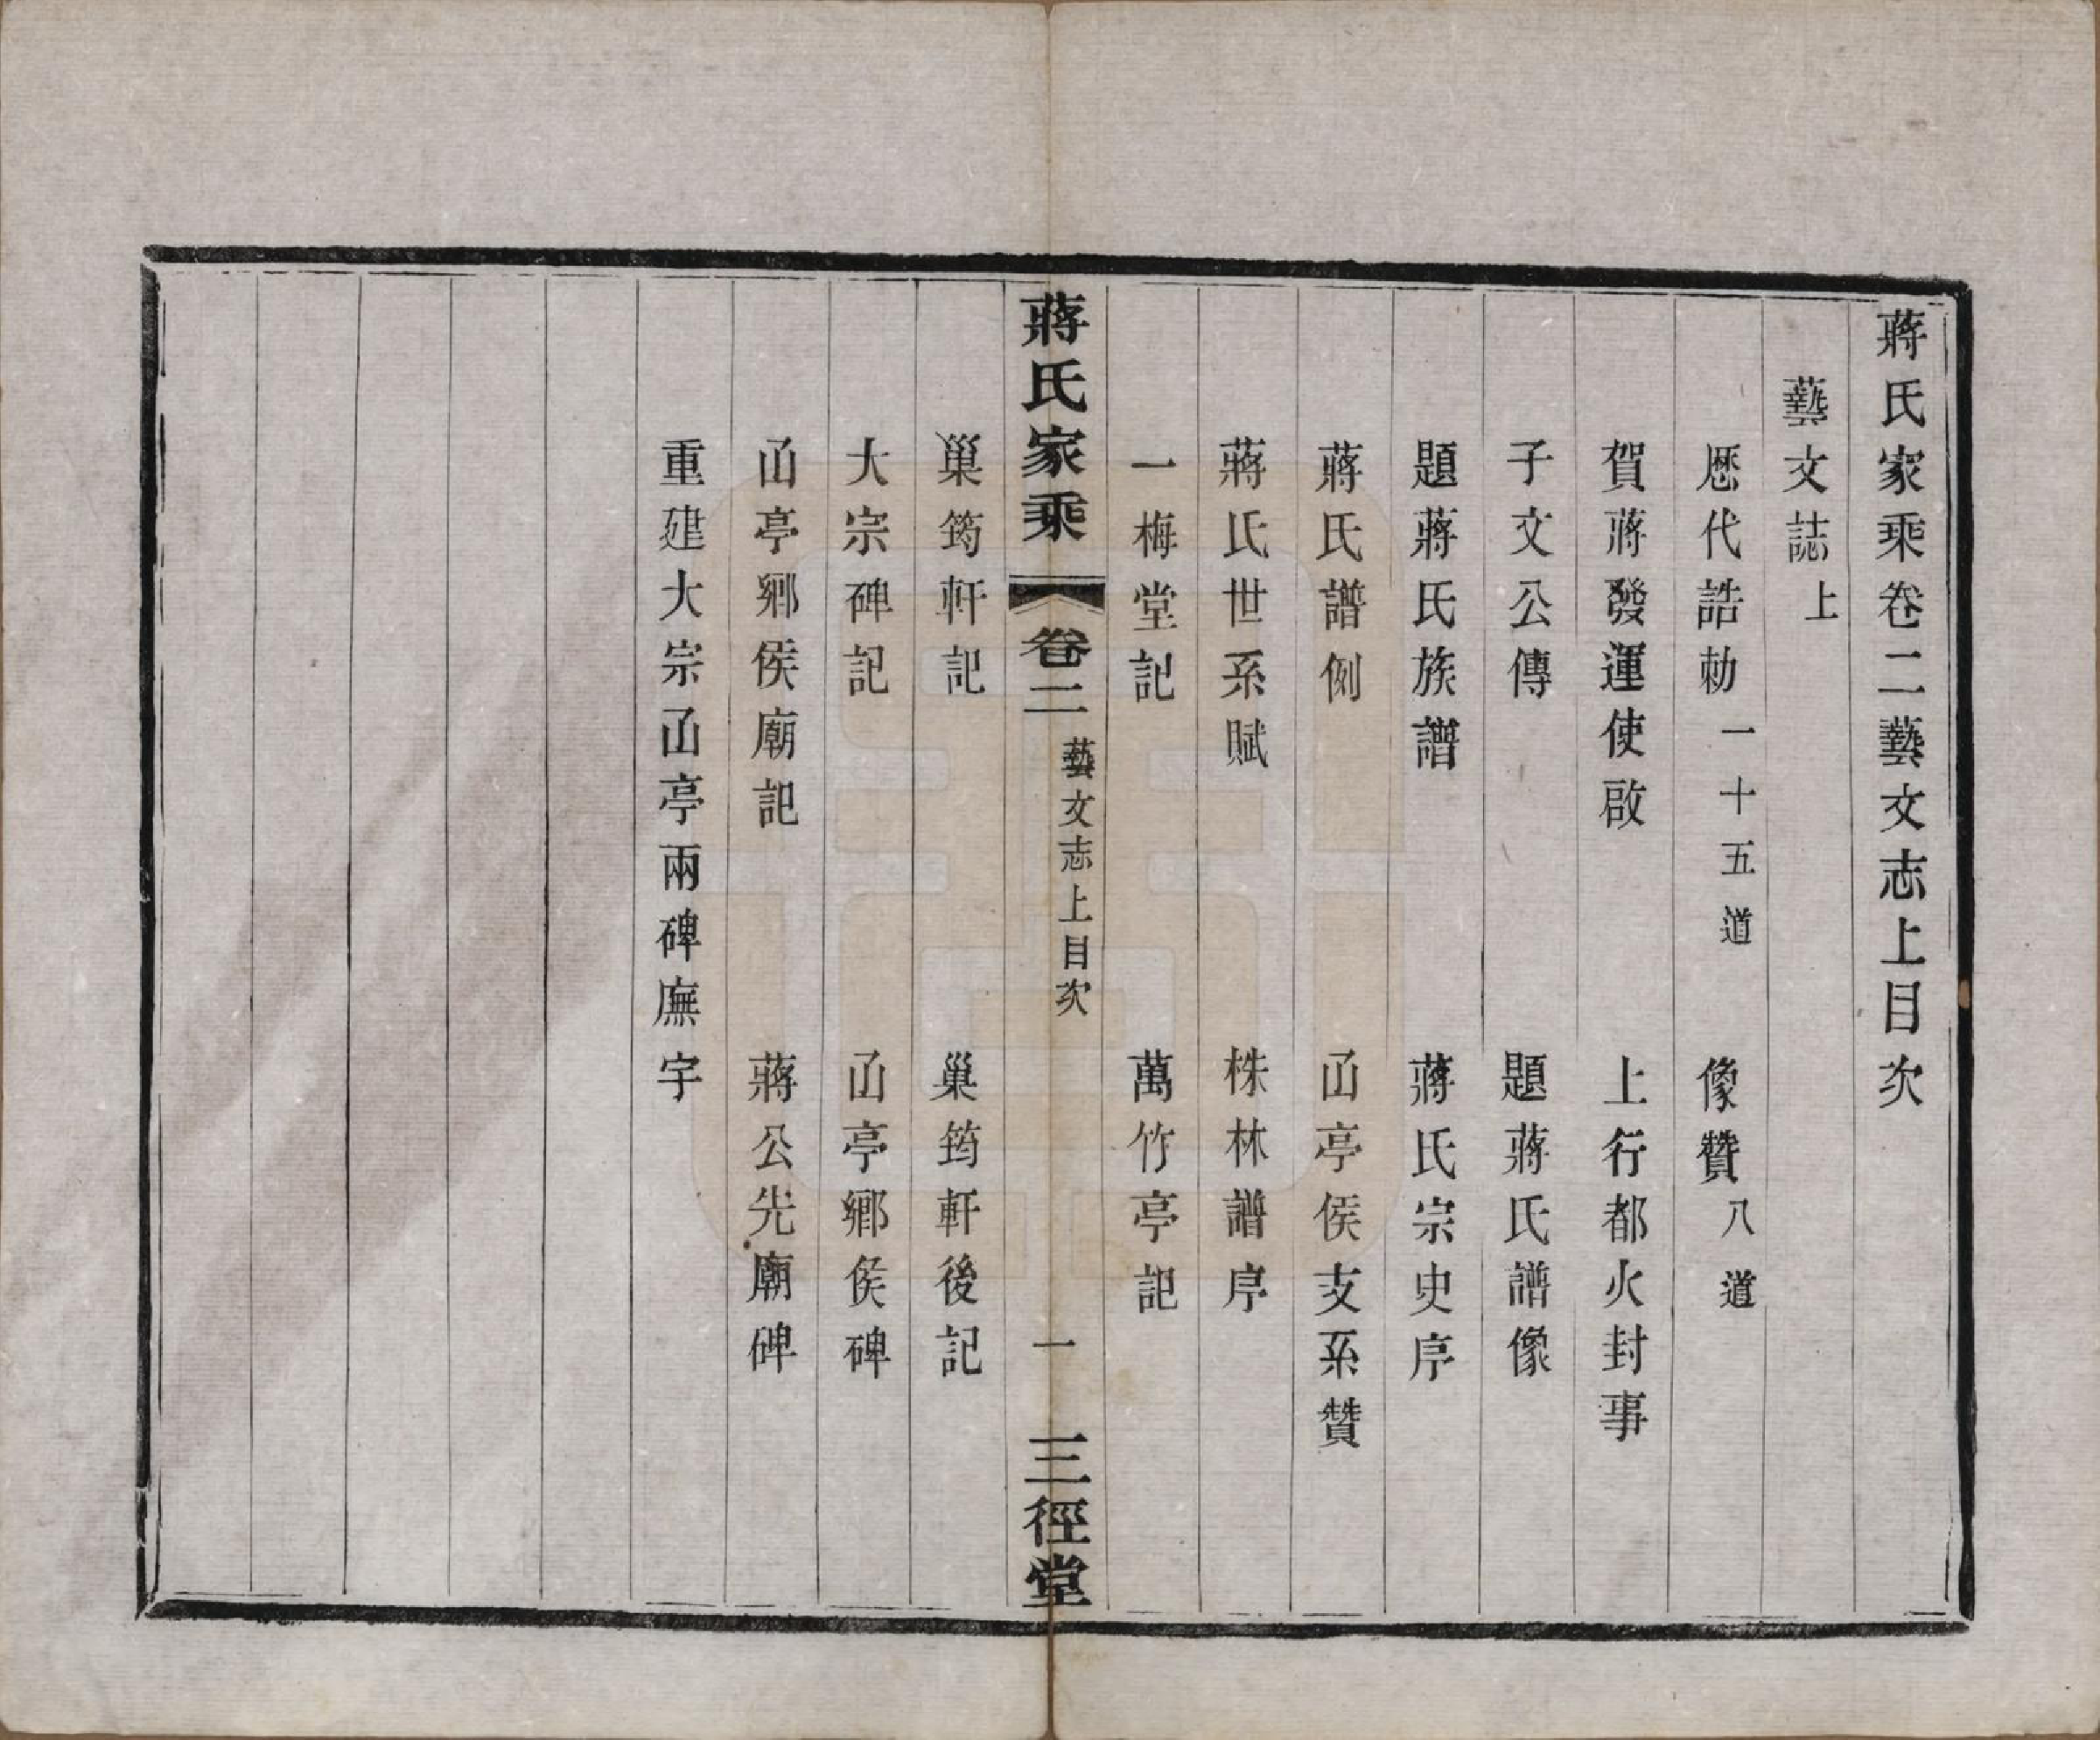 蔣氏家乘卷二藝文志上目次
藝文誌上
厯代誥勅一十五道　像贊八道
賀蔣發運使啟　上行都火封事
子文公傳　題蔣氏譜像
題蔣氏族譜　蔣氏宗史序
蔣氏譜例　𠙽亭侯支系贊
蔣氏世系賦　株林譜序
一梅堂記　萬竹亭記
蔣氏家乘　卷二　藝文志上目次　一　三徑堂
巢筠軒記　巢筠軒後記
大宗碑記　𠙽亭鄉侯碑
𠙽亭鄉侯廟記　蔣公先廟碑
重建大宗𠙽亭兩碑廡宇